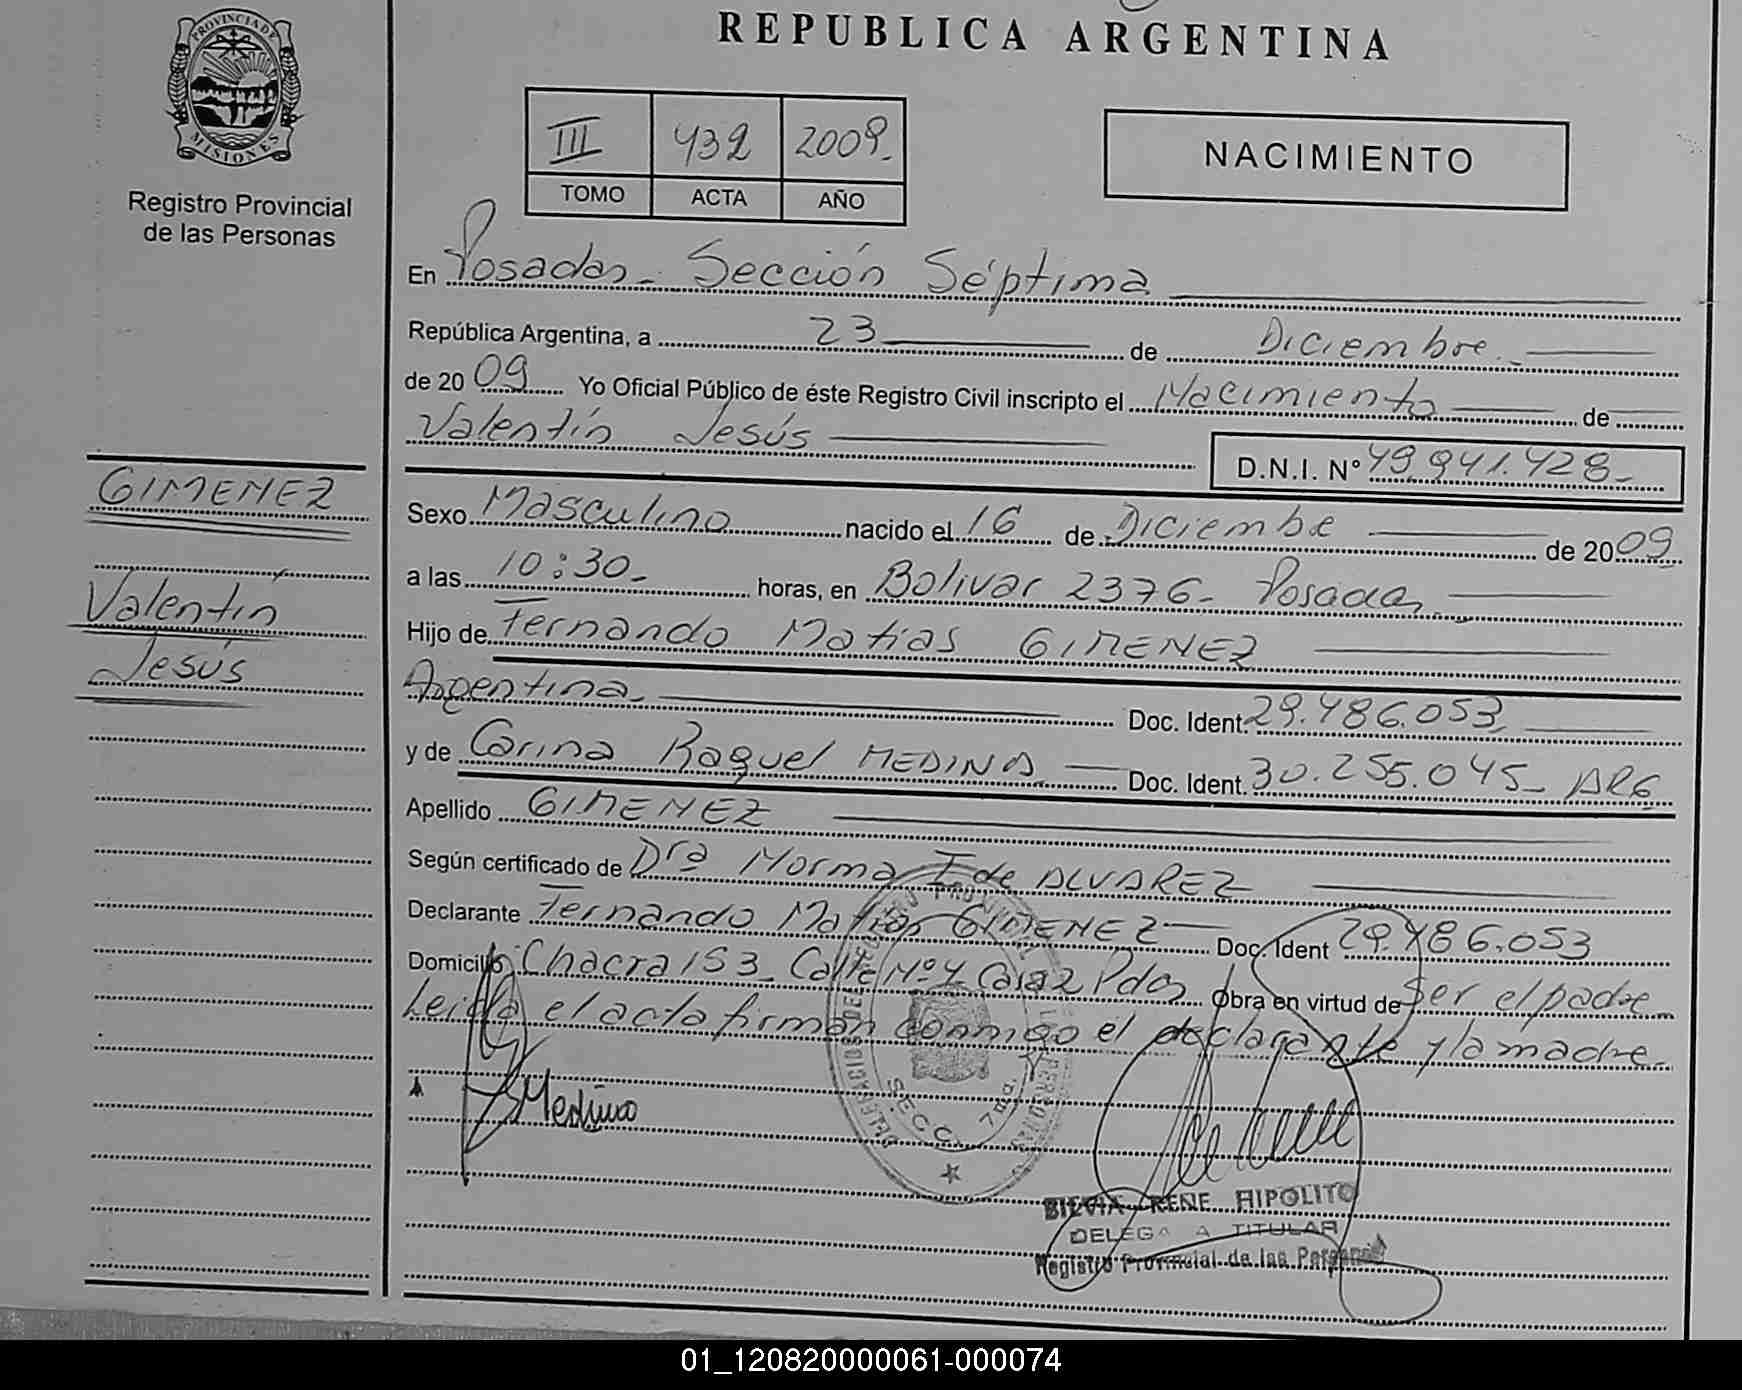 PROVINCIA DE
MISIONES
Registro Provincial
de las Personas
REPUBLICA ARGENTINA
III 432 2009.
TOMO ACTA AÑO
NACIMIENTO
En Posadas - Sección Séptima
República Argentina, a 23 de Diciembre.
de 2009 Yo Oficial Público de éste Registro Civil inscripto el Nacimiento de
Valentín Jesús
D.N.I. N° 49.941.428-
GIMENEZ
Valentín
Jesús
Sexo Masculino nacido el 16 de Diciembre de 2009
a las 10:30. horas, en Bolivar 2376- Posadas
Hijo de Fernando Matias GIMENEZ
Argentina. Doc. Ident. 29.486.053
y de Carina Raquel MEDINA Doc. Ident. 30.255.045- ARG
Apellido GIMENEZ
Según certificado de Dra Norma I de ALVAREZ
Declarante Fernando Matias GIMENEZ Doc. Ident 29.486.053
Domicilio Chacra 153. Calle Nº 4 Casa 2 Pdas Obra en virtud de Ser el padre
Leida el acta firman conmigo el declarante y la madre.
Medina
SECC. 7ma.
SILVIA RENE HIPOLITO
DELEGADA TITULAR
Registro Provincial de las Personas
01_120820000061-000074